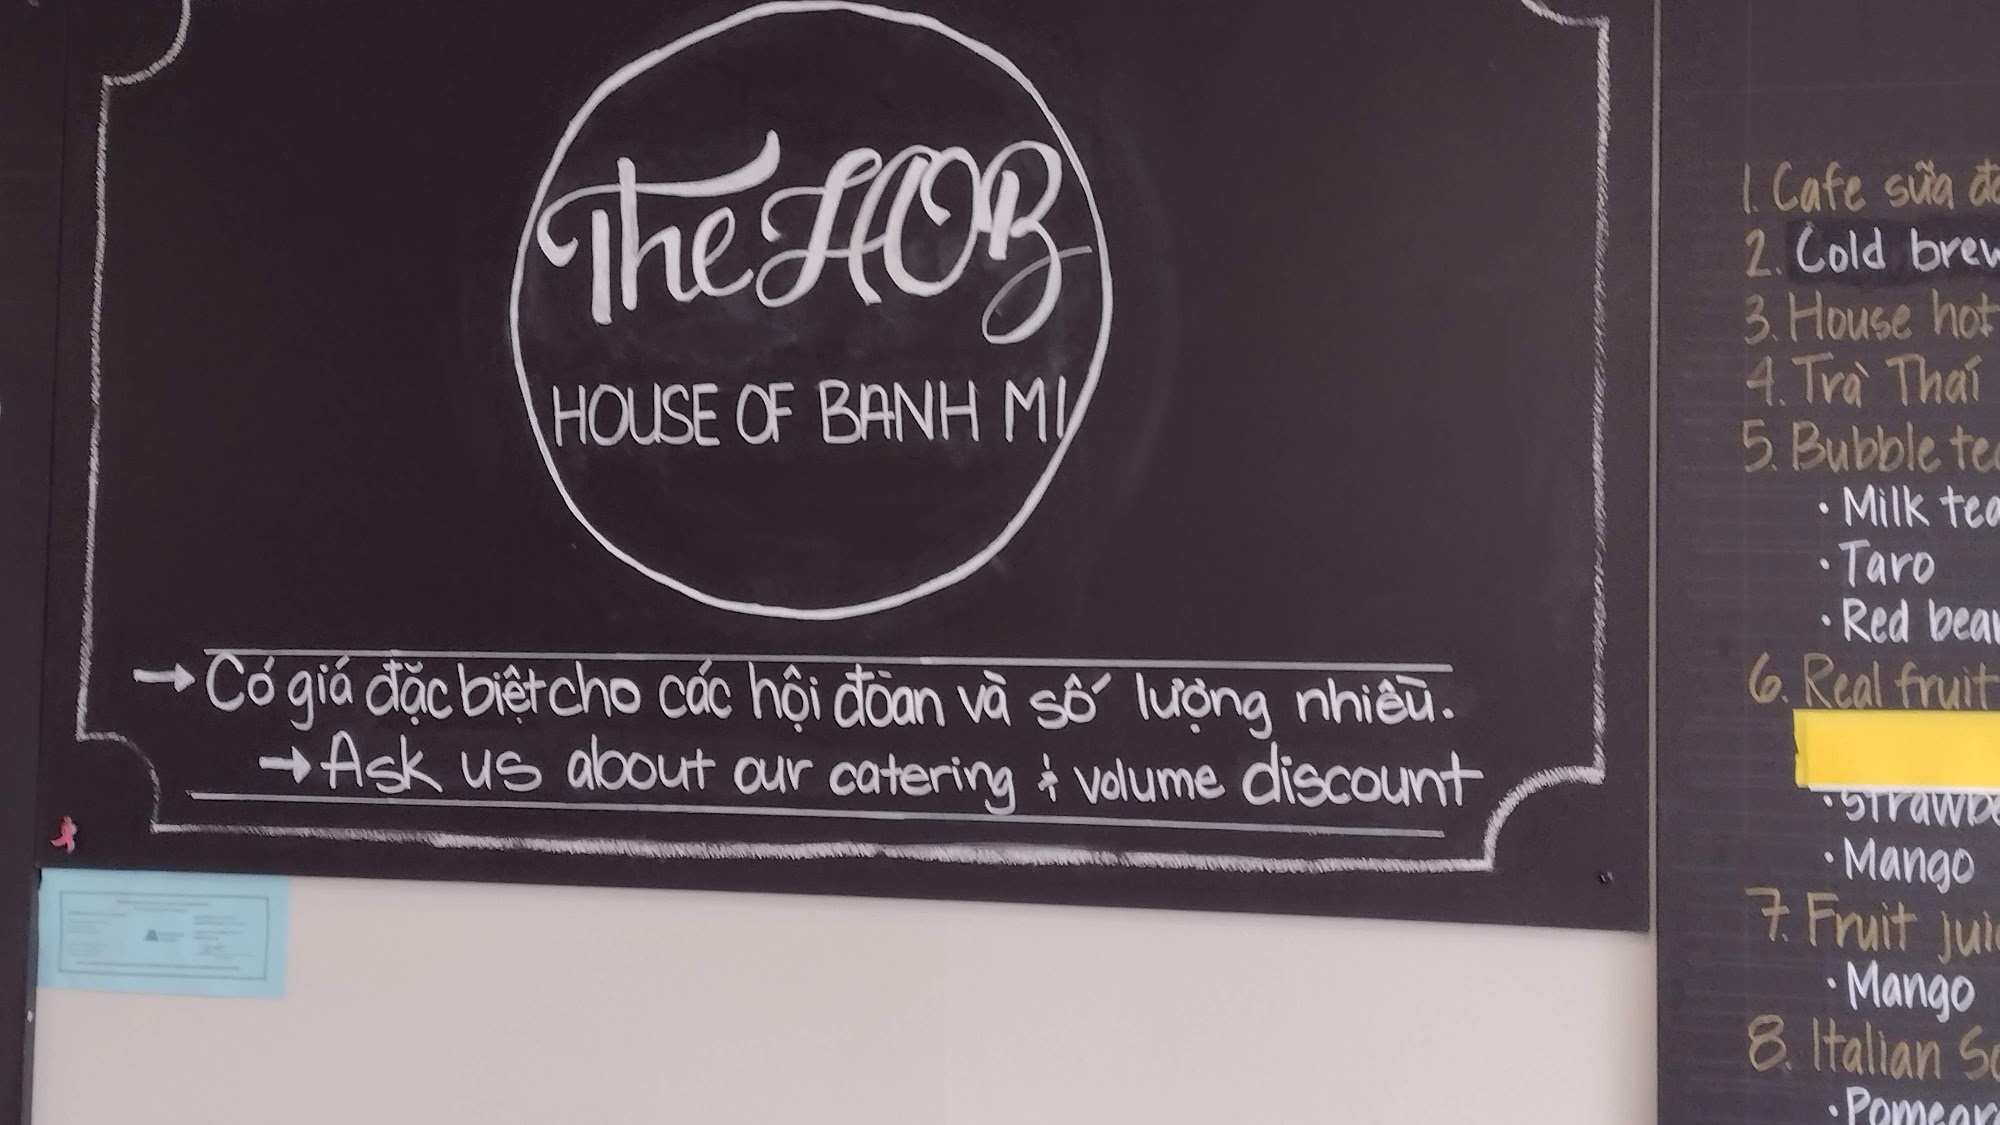 The HOB
HOUSE OF BANH MI
→ Có giá đặc biệt cho các hội đòan và số lượng nhiều.
→ Ask us about our catering & volume discount
1. Cafe sữa
2. Cold brew
3. House hot
4. Trà Thái
5. Bubble
• Milk
• Taro
• Red
6. Real fruit
• Mango
7. Fruit
• Mango
8. Italian